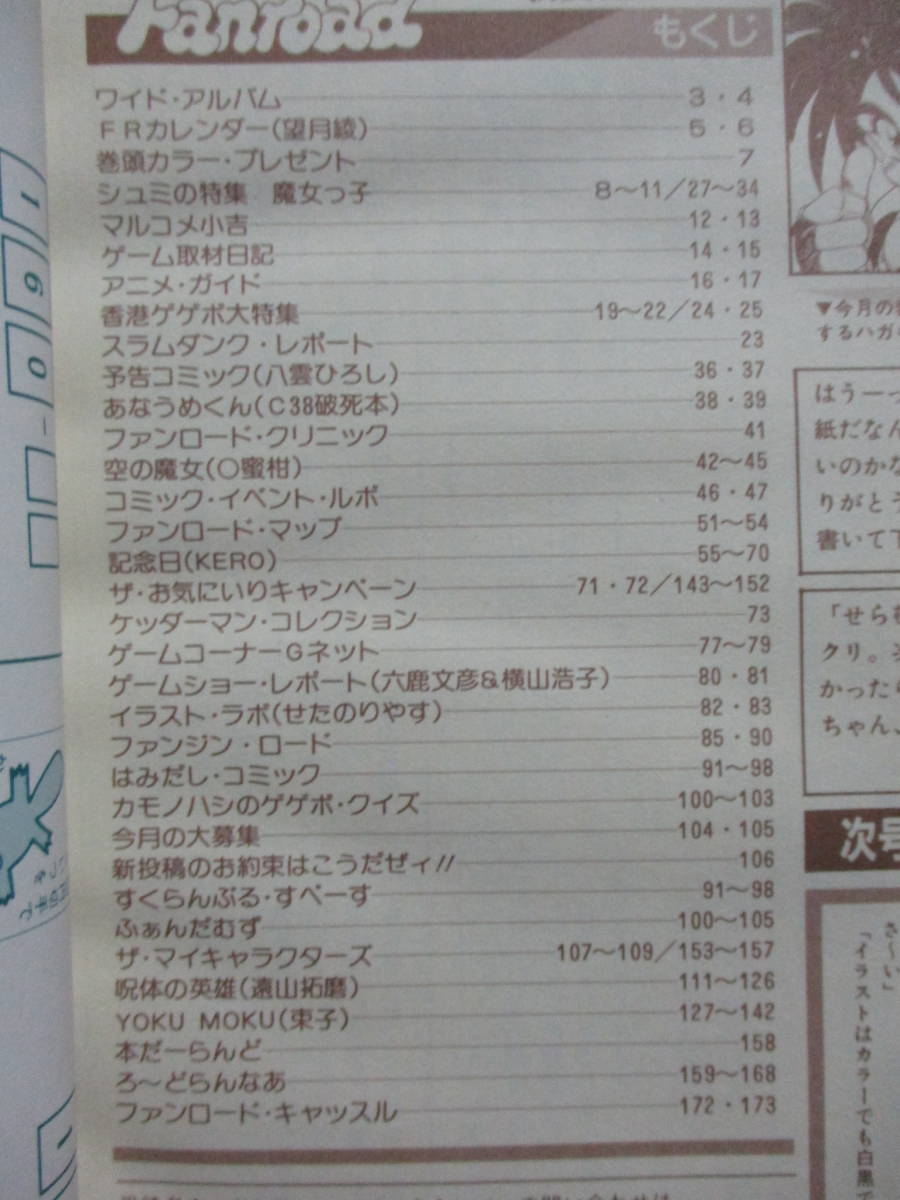 Fanroad
もくじ
ワイド・アルバム 3・4
FRカレンダー(望月綾) 5・6
巻頭カラー・プレゼント 7
シュミの特集 魔女っ子 8〜11／27〜34
マルコメ小吉 12・13
ゲーム取材日記 14・15
アニメ・ガイド 16・17
香港ゲゲボ大特集 19〜22／24・25
スラムダンク・レポート 23
予告コミック(八雲ひろし) 36・37
あなうめくん(C38破死本) 38・39
ファンロード・クリニック 41
空の魔女(○蜜柑) 42〜45
コミック・イベント・ルポ 46・47
ファンロード・マップ 51〜54
記念日(KERO) 55〜70
ザ・お気にいりキャンペーン 71・72／143〜152
ケッダーマン・コレクション 73
ゲームコーナーGネット 77〜79
ゲームショー・レポート(六鹿文彦&横山浩子) 80・81
イラスト・ラボ(せたのりやす) 82・83
ファンジン・ロード 85・90
はみだし・コミック 91〜98
カモノハシのゲゲボ・クイズ 100〜103
今月の大募集 104・105
新投稿のお約束はこうだぜィ!! 106
すくらんぶる・すぺーす 91〜98
ふぁんだむず 100〜105
ザ・マイキャラクターズ 107〜109／153〜157
呪体の英雄(遠山拓磨) 111〜126
YOKU MOKU(東子) 127〜142
本だーらんど 158
ろ〜どらんなあ 159〜168
ファンロード・キャッスル 172・173
▼今月の
するハガ
はうーっ
紙だなん
いのかな
りがとう
書いて下
「せらむ
クリ。
かったら
ちゃん、
次号
さ〜い」
「イラストはカラーでも白黒で
160-